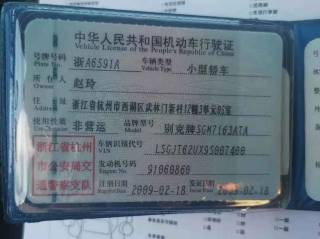 中华人民共和国机动车行驶证
Vehicle License of the People's Republic of China
号牌号码 浙A6591A 车辆类型 小型轿车
Plate No. Vehicle Type
所有人 赵玲
Owner
住址 浙江省杭州市西湖区武林门新村12幢3单元05室
Address
使用性质 非营运 品牌型号 别克牌SGM7163ATA
浙江省杭州市公安局交通警察支队
车辆识别代号 LSGJT62UX9S007400
VIN
发动机号码 91060860
Engine No.
注册日期 2009-02-18 发证日期 2009-02-18
Register Date Issue Date